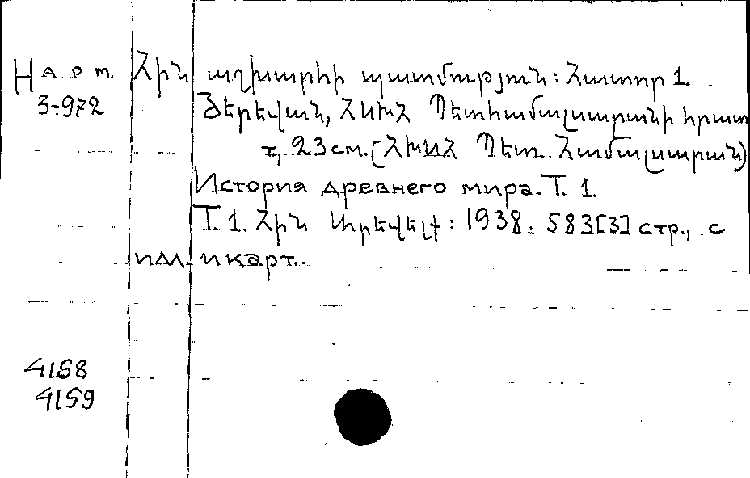 На р т. Հին աշխարհի պատմություն: Հատոր 1
3-972 Յերեվան, ՀՍԽՀ Պետհամալսարանի հրատ
23 см. (ՀԽՍՀ Պետ. Համալսարան)
История древнего мира. Т. 1.
Т. 1. Հին Արեվելք: 1938. 583[3] стр., с
илл. и карт.
4158
4159